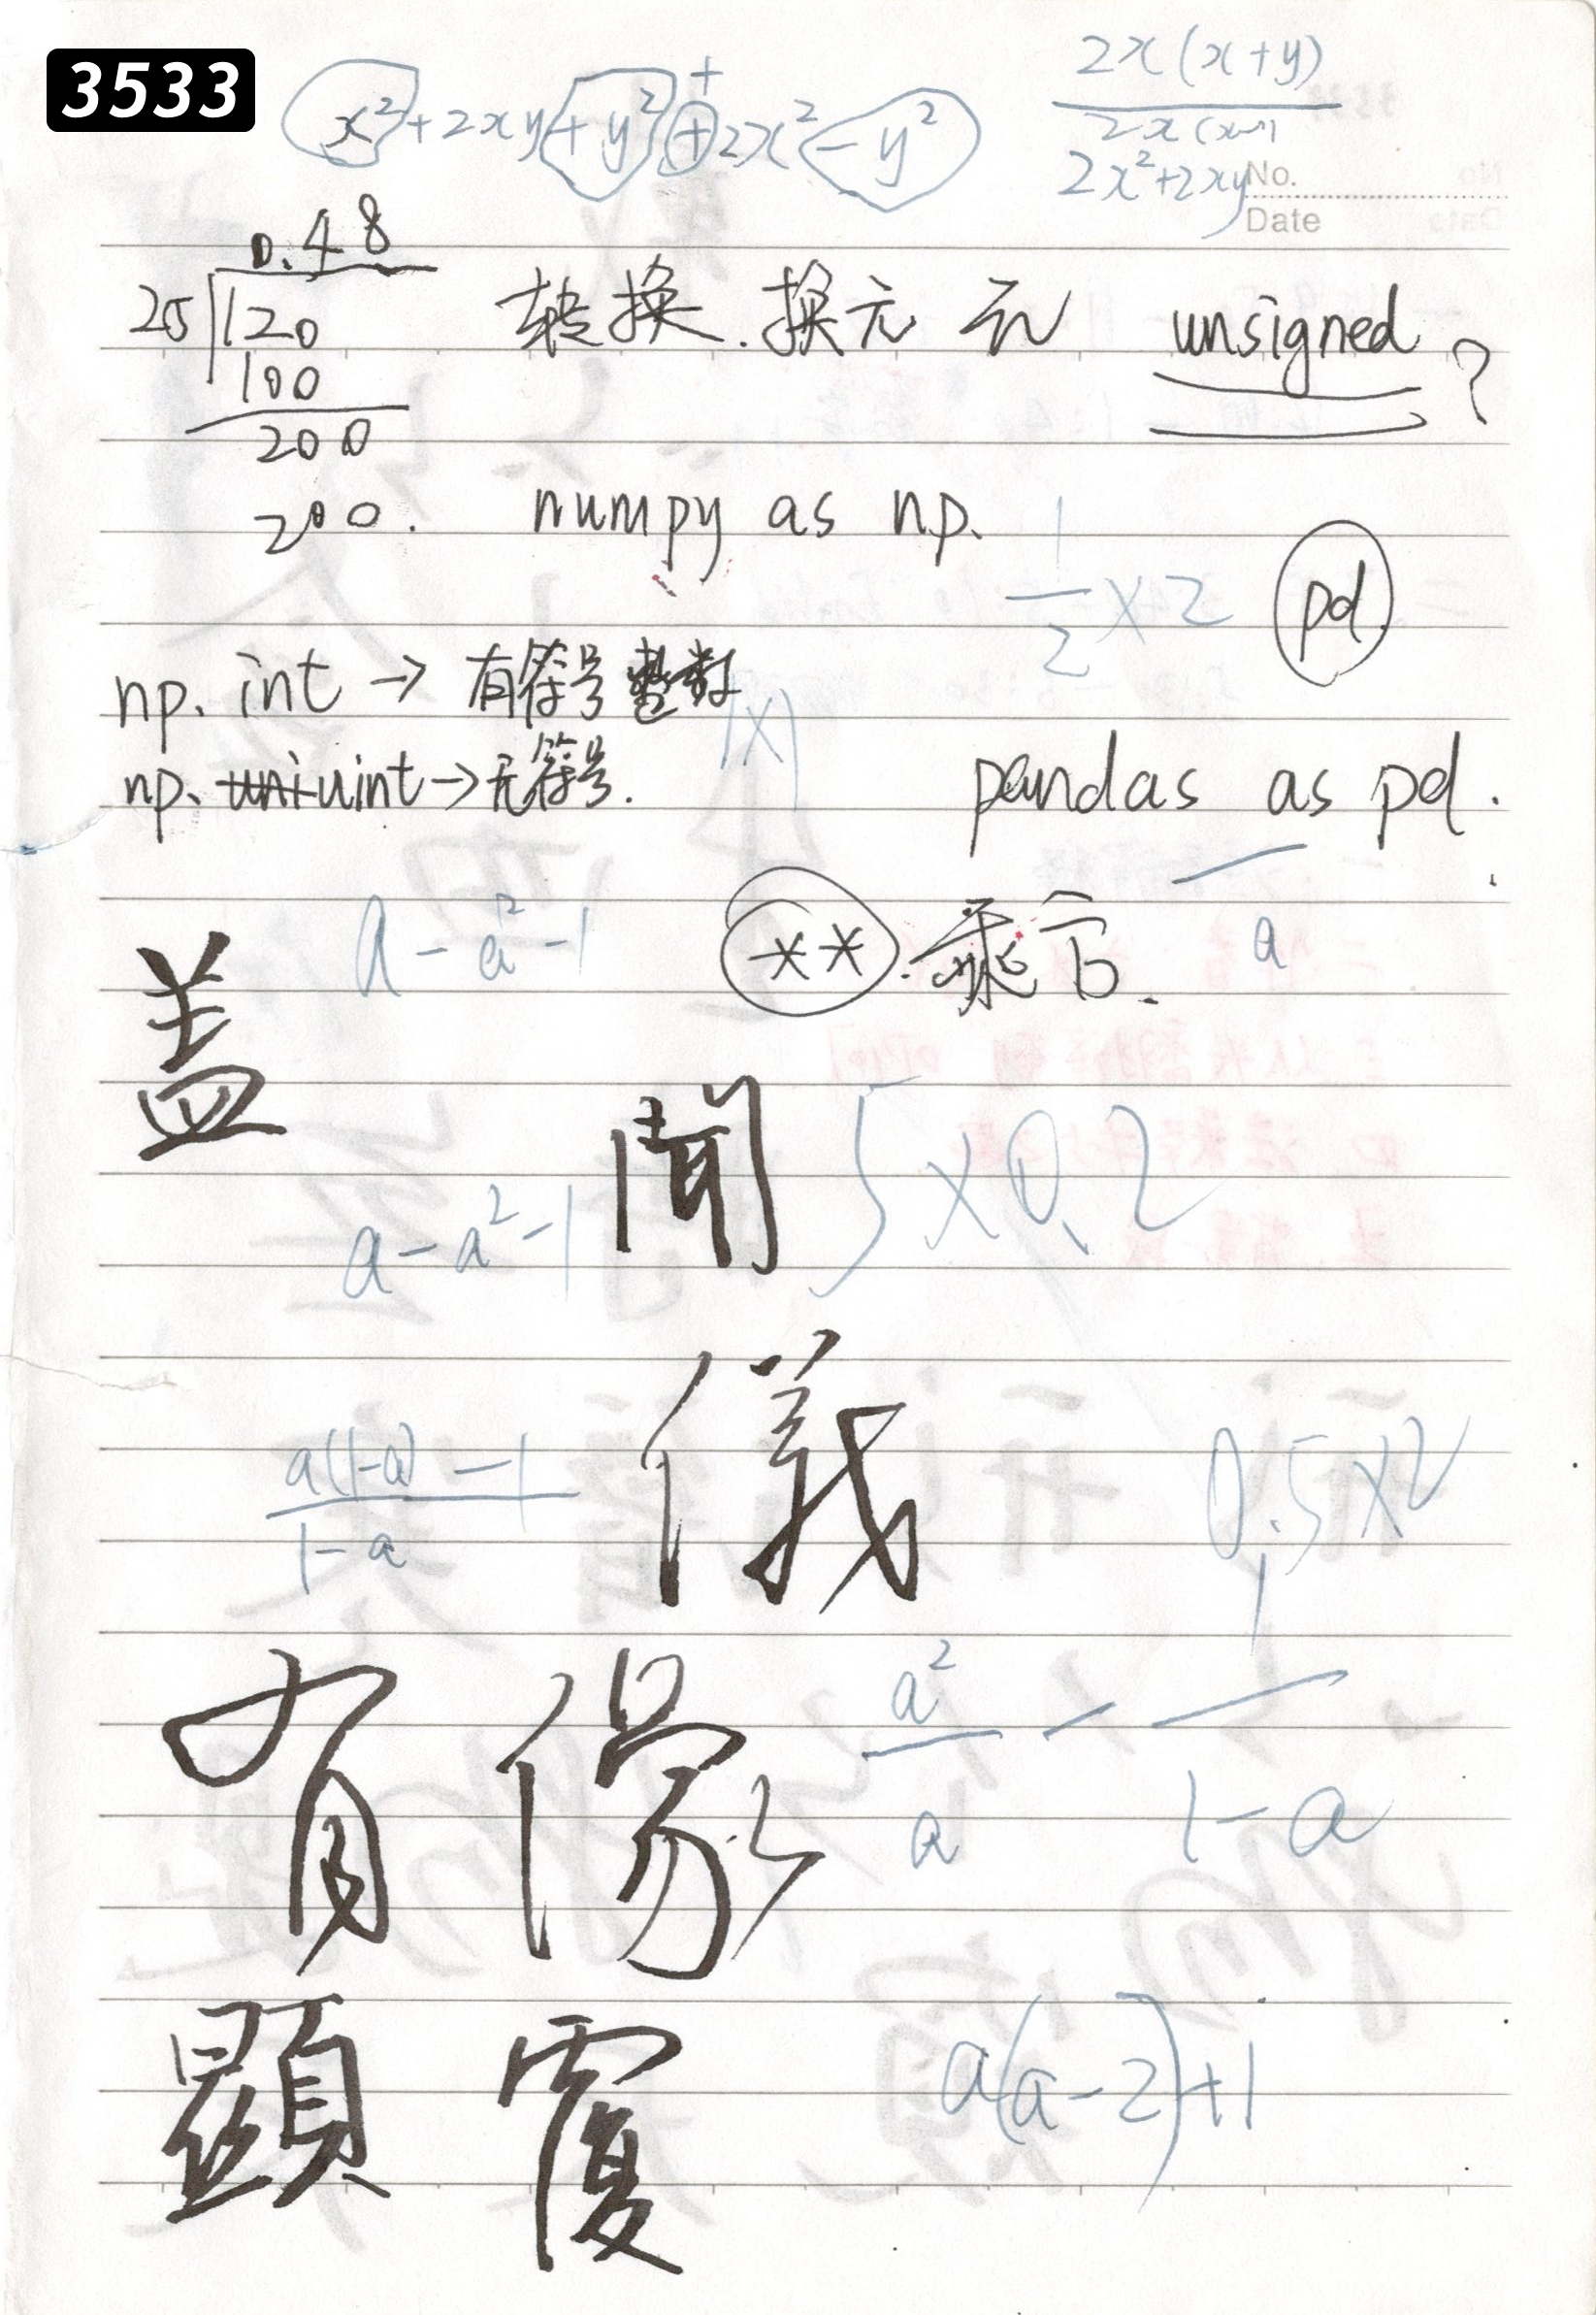 3533
x²+2xy+y²+2x²-y²
+
2x(x+y)
2x²+2xy
No.
Date
0.48
25 120
100
200
200.
转换.换元 元 unsigned ?
numpy as np.
1/2 ×2
pd.
np. int → 有符号整数
np. uint→无符号.
pandas as pd.
a-a²-1
** 乘方.
a
盖
聞
5×0.2
a-a²-1
儀
a(1-a)-1
1-a
0.5×2
有像
a²/a - 1/1-a
顯覆
a(a-2)+1